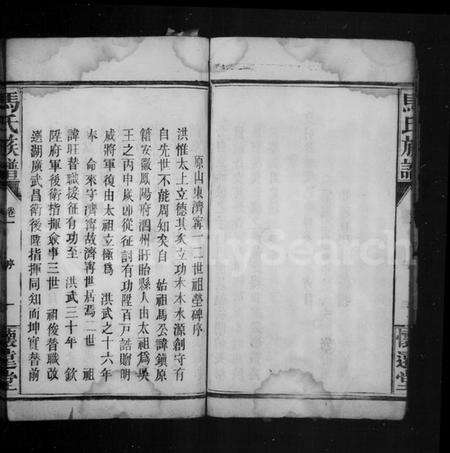 馬氏族譜
懷遠堂
原山東濟寧一二世祖塋碑序
洪惟太上立德其次立功木本水源創守有
自先世不能周知矣自 始祖馬公諱鎮原
籍安徽鳳陽府泗州盱眙縣人由太祖為吳
王之丙申歲從征討有功陞百戶誥贈明
威將軍後由太祖立極為 洪武之十六年
奉 命來守濟寧故濟寧世居焉二世 祖
諱旺替職接征有功至 洪武三十年 欽
陞府軍後衛指揮僉事三世 祖俊替職改
選湖廣武昌衛後陞指揮同知而坤實替前
馬氏族譜
卷一
序
一
懷遠堂
FamilySearch